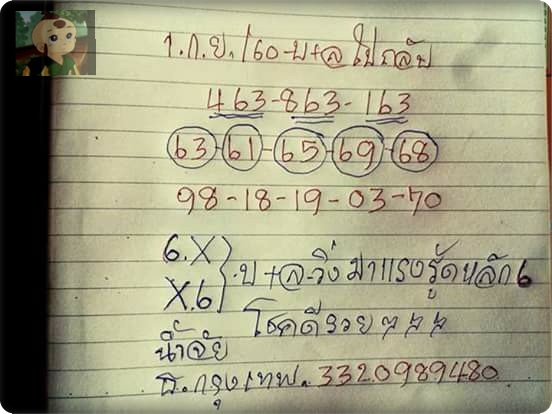 1.ก.ย./60-บ+ล ไปกลับ
463-863-163
63-61-65-69-68
98-18-19-03-70
6.X
X.6
.บ+ล.วิ่งมาแรงรูดหลัก6
โชคดีรวย ๆ ๆ ๆ
น้ำใจ
ธ.กรุงเทพ.3320989480